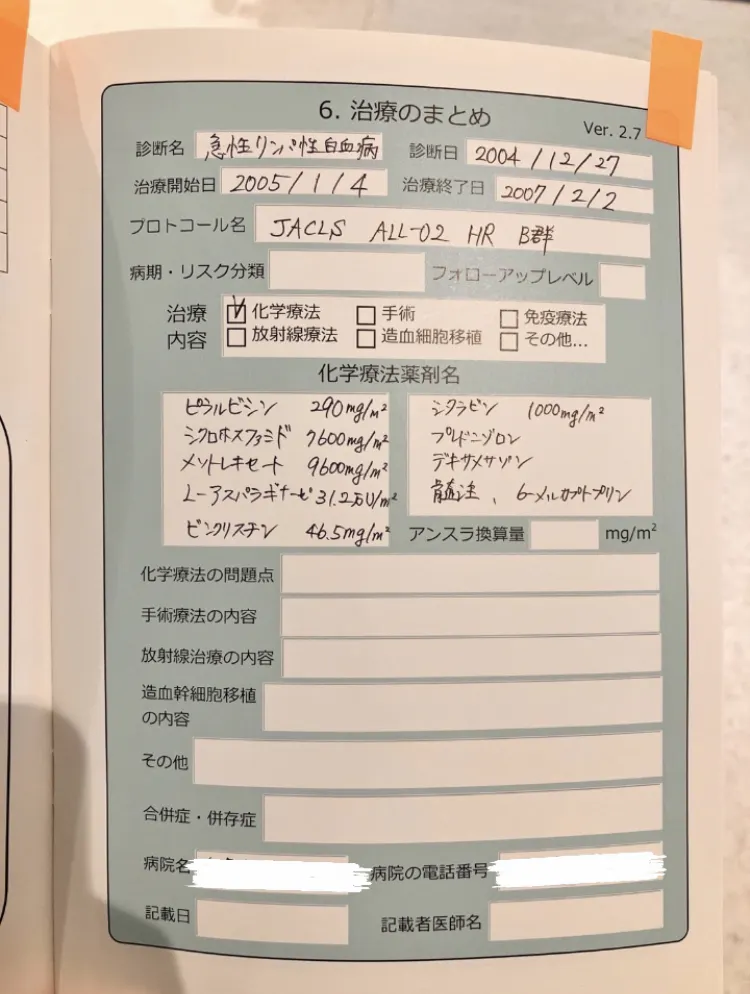 6. 治療のまとめ
Ver. 2.7
診断名 急性リンパ性白血病 診断日 2004/12/27
治療開始日 2005/1/4 治療終了日 2007/2/2
プロトコール名 JACLS ALL-02 HR B群
病期・リスク分類 フォローアップレベル
治療内容
化学療法 手術 免疫療法
放射線療法 造血細胞移植 その他...
化学療法薬剤名
ピラルビシン 290mg/m²
シクロホスファミド 7600mg/m²
メソトレキセート 9600mg/m²
L-アスパラギナーゼ 31.2万U/m²
ビンクリスチン 46.5mg/m²
シタラビン 1000mg/m²
プレドニゾロン
デキサメサゾン
髄注、6-メルカプトプリン
アンスラ換算量 mg/m²
化学療法の問題点
手術療法の内容
放射線治療の内容
造血幹細胞移植
の内容
その他
合併症・併存症
病院名 病院の電話番号
記載日 記載者医師名